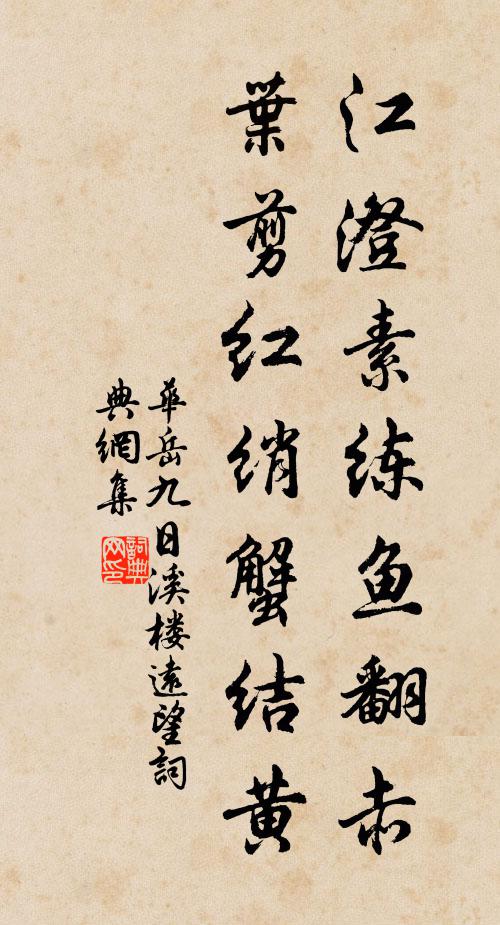 江澄素练鱼翻赤
葉剪红绡蟹结黄
華岳九日溪楼遠望詞
典網集
詞典
网印